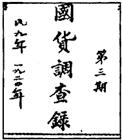 第三期
國貨調查錄
民九年 一九二〇年